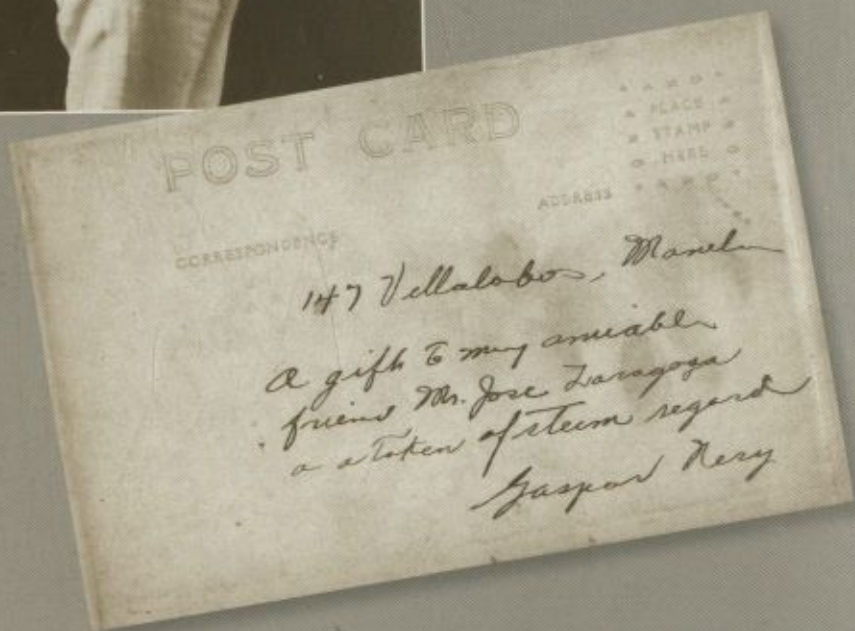 POST CARD
PLACE
STAMP
HERE
CORRESPONDENCE
ADDRESS
147 Villalobos, Manila
A gift to my amiable
friend Mr. Jose Zaragoza
a a token of steem regard
Gaspar Nery